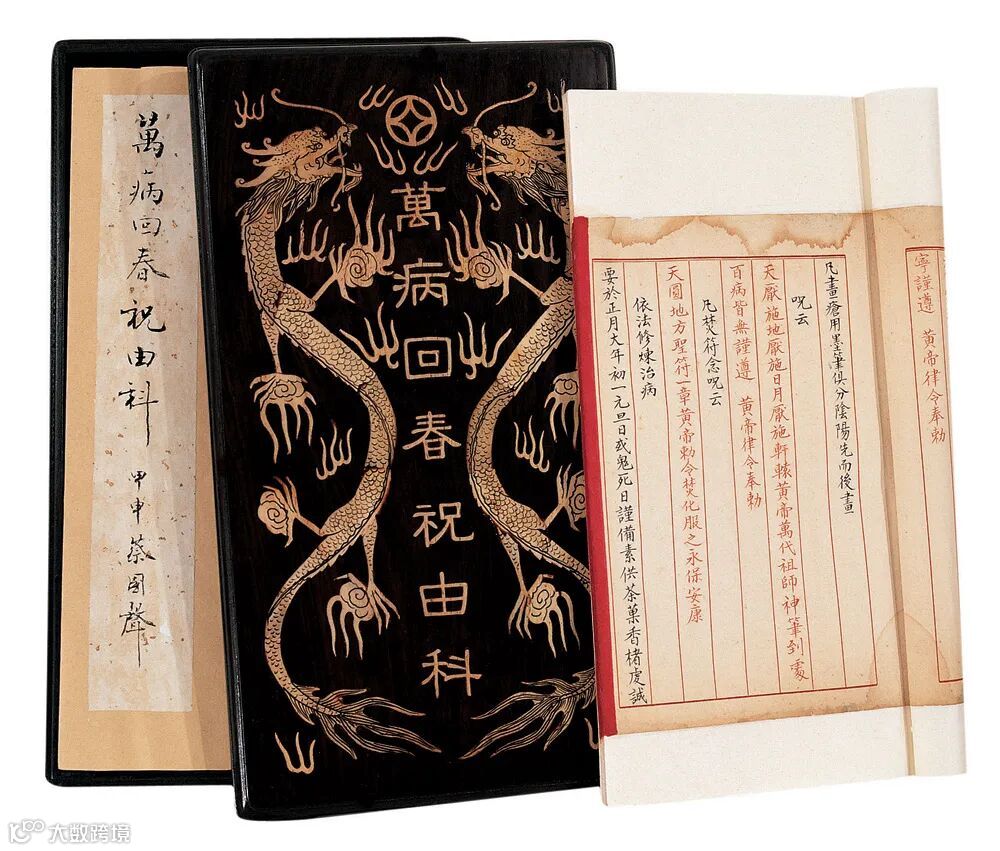 萬病回春祝由科
甲申 蔡國聲
萬病回春祝由科
寧謹遵 黃帝律令奉勅
凡畫瘡用墨筆俱分陰陽先而後畫
呪云
天厭施地厭施日月厭施軒轅黃帝萬代祖師神筆到處
百病皆無謹遵 黃帝律令奉勅
凡焚符念呪云
天圓地方聖符一章黃帝勅令焚化服之永保安康
依法修煉治病
要於正月大年初一元旦日或鬼死日謹備素供茶菓香楮虔誠
大数跨境